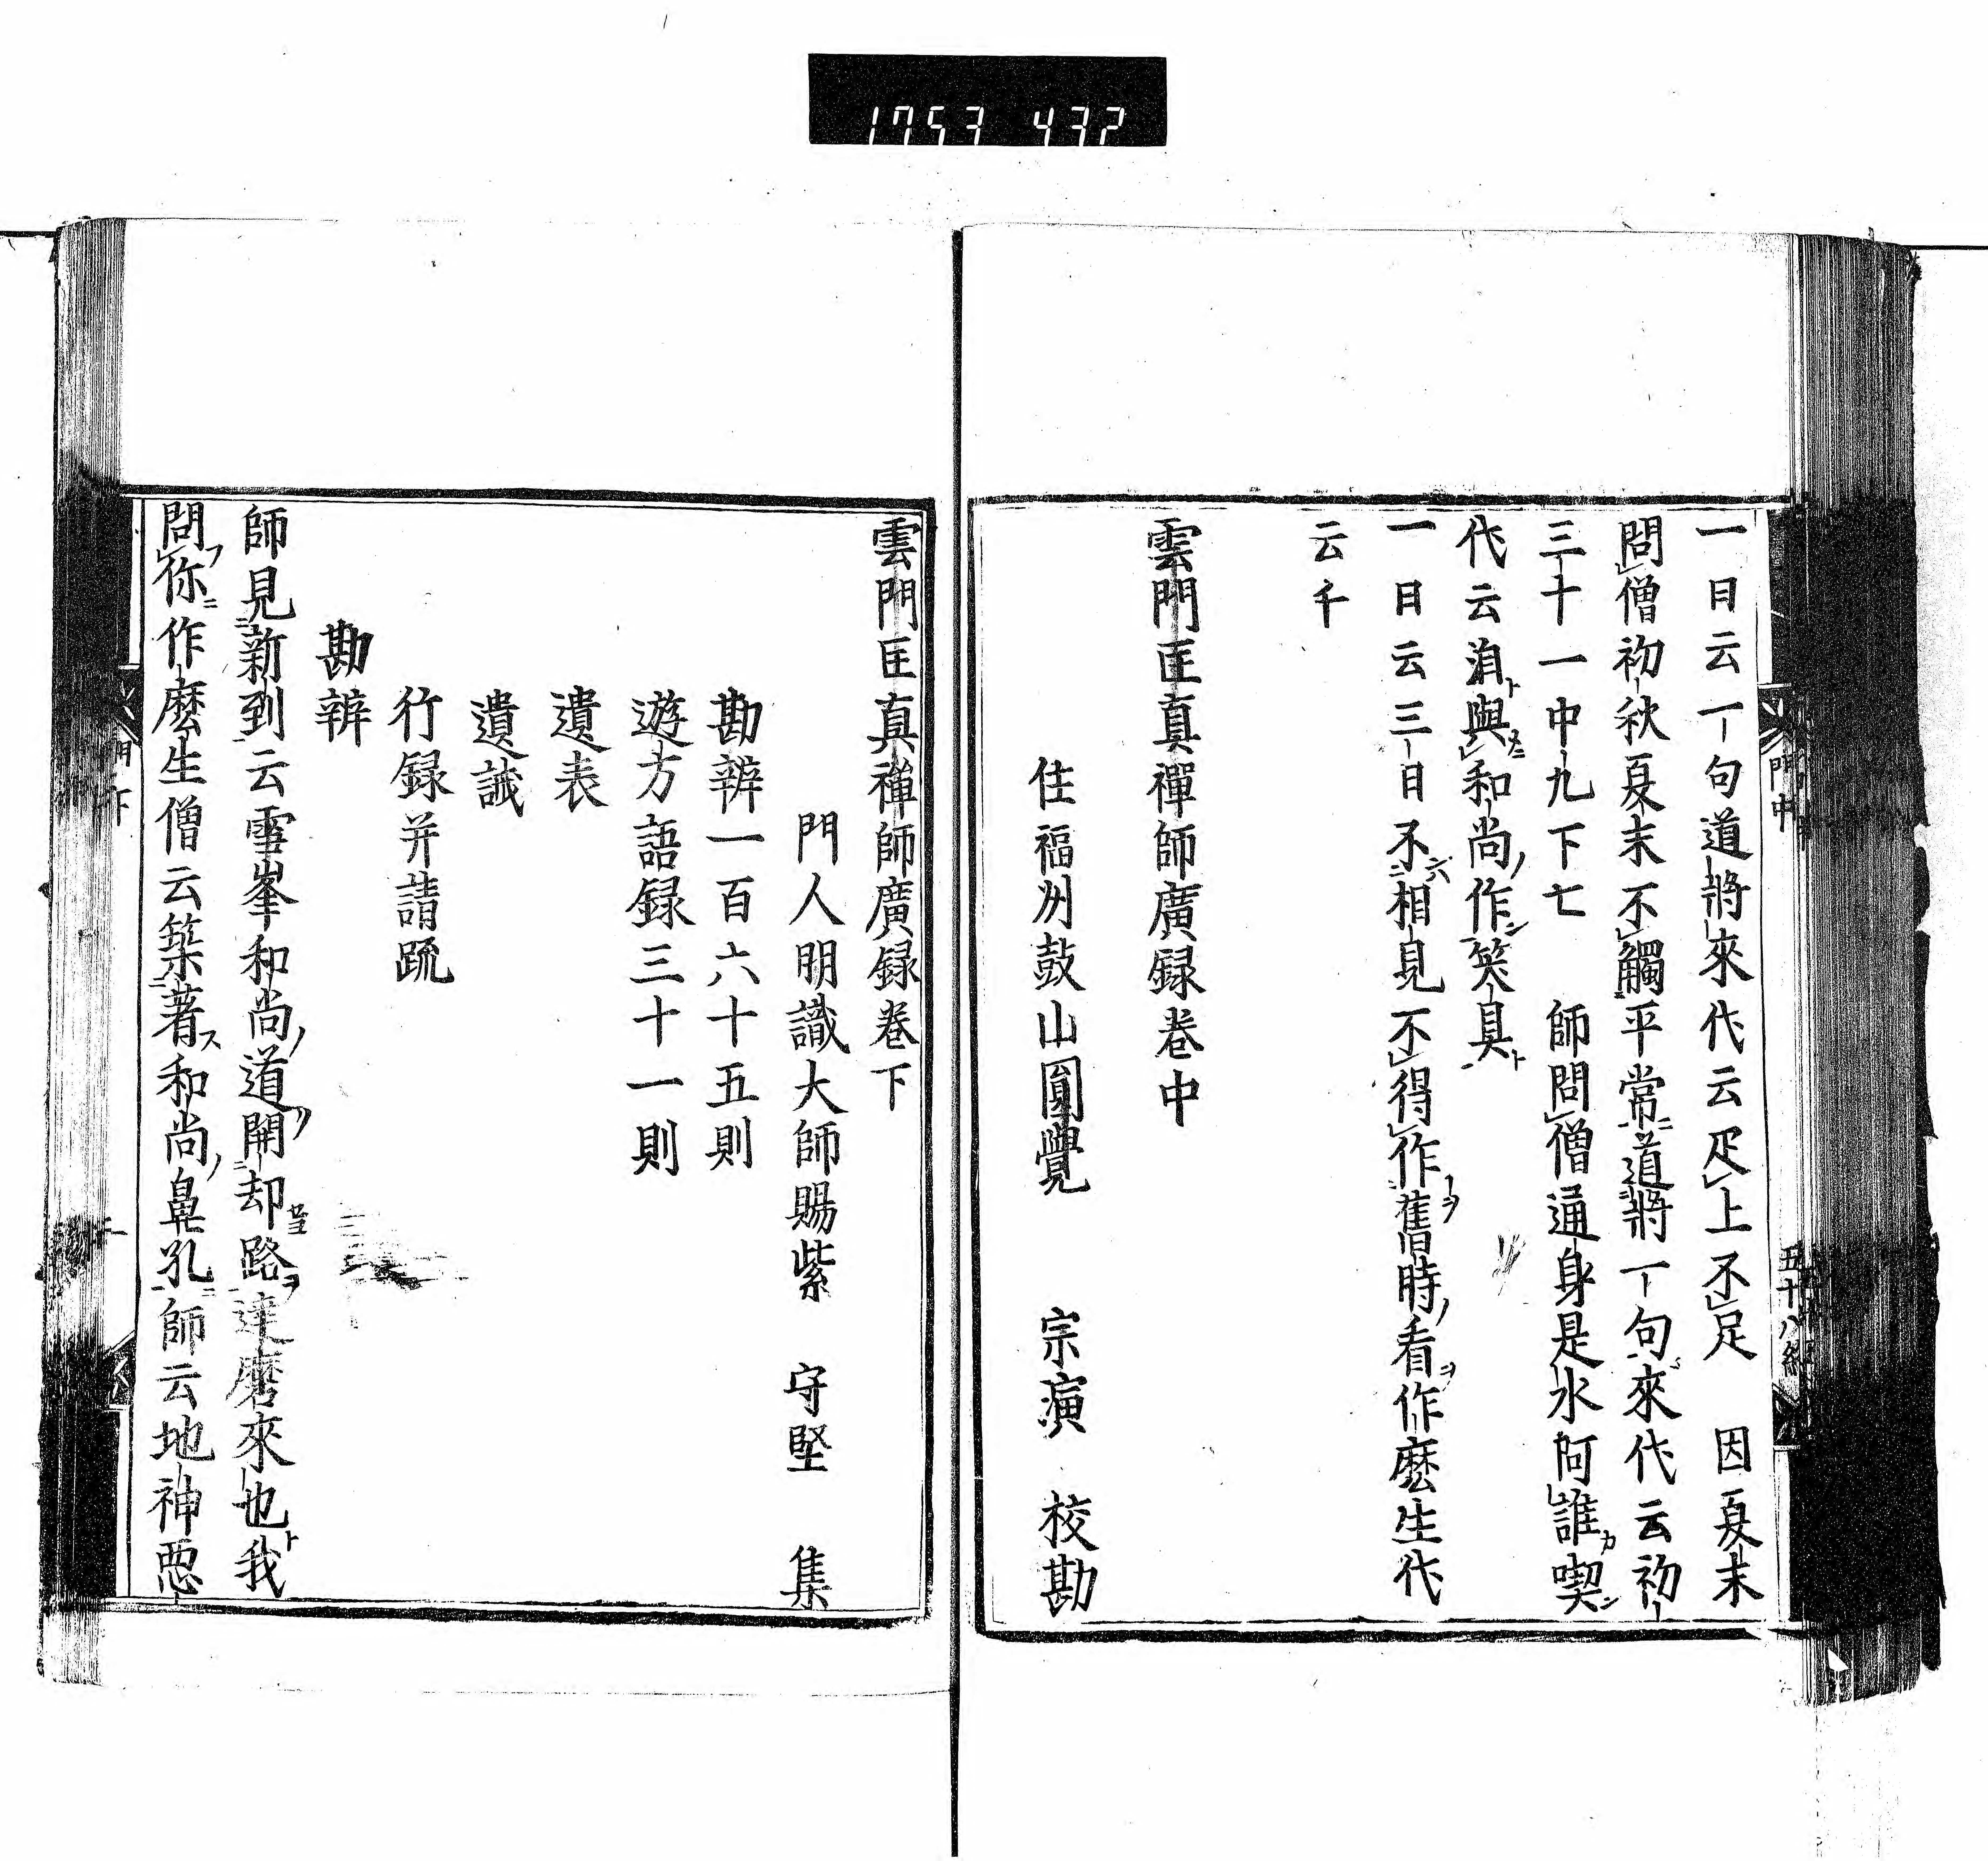 1753 432
一日云一句道將來代云疋上不足　因夏末
問僧初秋夏末不觸平常道將一句來代云初
三十一中九下七　師問僧通身是水阿誰喫
代云洎與和尚作笑具
一日云三日不相見不得作舊時看作麼生代
云千
雲門匡真禪師廣録卷中
住福州鼓山圓覺　宗演　校勘
門中
五十八終
雲門匡真禪師廣録卷下
門人明識大師賜紫　守堅　集
勘辨一百六十五則
遊方語録三十一則
遺表
遺誡
行録并請疏
勘辨
師見新到云雪峯和尚道開却路達磨來也我
問你作麼生僧云築著和尚鼻孔師云地神惡
門下